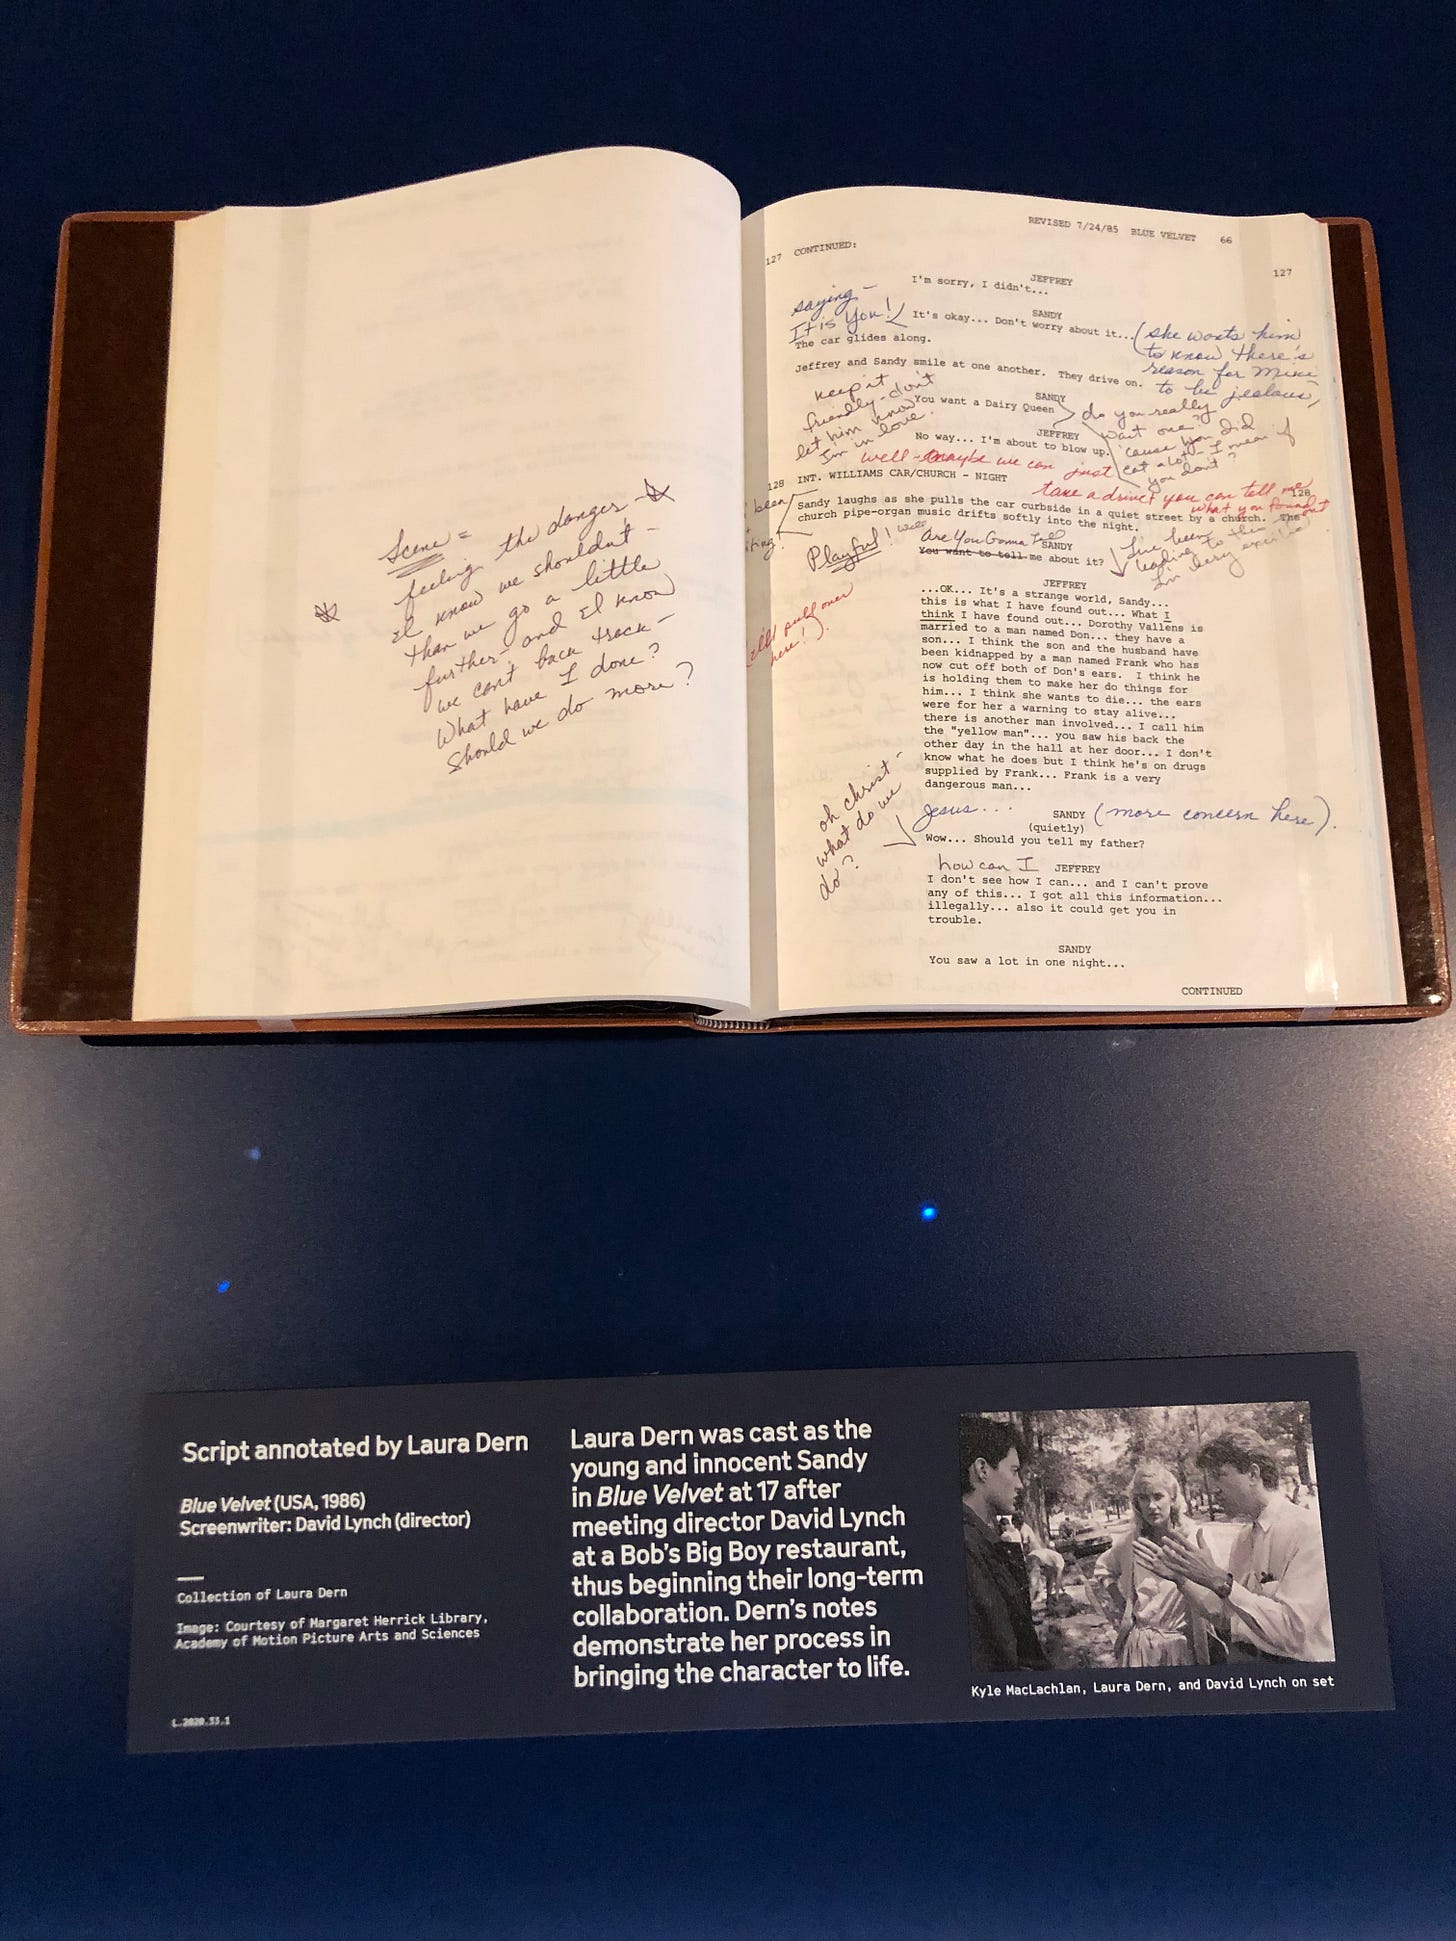 Scene =
feeling the danger -
I know we shouldn't -
than we go a little
further - and I know
we can't back track -
What have I done?
Should we do more?
REVISED 7/24/85 BLUE VELVET 66
127 CONTINUED: 127
JEFFREY
I'm sorry, I didn't...
saying -
It is You!
SANDY
It's okay... Don't worry about it...
(she wants him
to know there's
reason for Mike
to be jealous,
The car glides along.
Jeffrey and Sandy smile at one another. They drive on.
keep it
friendly - don't
let him know
I'm in love.
SANDY
You want a Dairy Queen
do you really
want one?
'cause you did
eat a lot - I mean if
you don't?
JEFFREY
No way... I'm about to blow up.
well - maybe we can just
take a drive & you can tell me
what you found out
128 INT. WILLIAMS CAR/CHURCH - NIGHT 128
Sandy laughs as she pulls the car curbside in a quiet street by a church. The
church pipe-organ music drifts softly into the night.
been
Playful! well
Are You Gonna Tell
SANDY
You want to tell me about it?
I've been
leading to this
I'm very excited
(I'll pull over
here!).
JEFFREY
...OK... It's a strange world, Sandy...
this is what I have found out... What I
think I have found out... Dorothy Vallens is
married to a man named Don... they have a
son... I think the son and the husband have
been kidnapped by a man named Frank who has
now cut off both of Don's ears. I think he
is holding them to make her do things for
him... I think she wants to die... the ears
were for her a warning to stay alive...
there is another man involved... I call him
the "yellow man"... you saw his back the
other day in the hall at her door... I don't
know what he does but I think he's on drugs
supplied by Frank... Frank is a very
dangerous man...
oh christ -
what do we
do?
Jesus...
SANDY (more concern here).
(quietly)
Wow... Should you tell my father?
how can I
JEFFREY
I don't see how I can... and I can't prove
any of this... I got all this information...
illegally... also it could get you in
trouble.
SANDY
You saw a lot in one night...
CONTINUED
Script annotated by Laura Dern
Blue Velvet (USA, 1986)
Screenwriter: David Lynch (director)
Collection of Laura Dern
Image: Courtesy of Margaret Herrick Library,
Academy of Motion Picture Arts and Sciences
L.2020.33.1
Laura Dern was cast as the
young and innocent Sandy
in Blue Velvet at 17 after
meeting director David Lynch
at a Bob's Big Boy restaurant,
thus beginning their long-term
collaboration. Dern's notes
demonstrate her process in
bringing the character to life.
Kyle MacLachlan, Laura Dern, and David Lynch on set